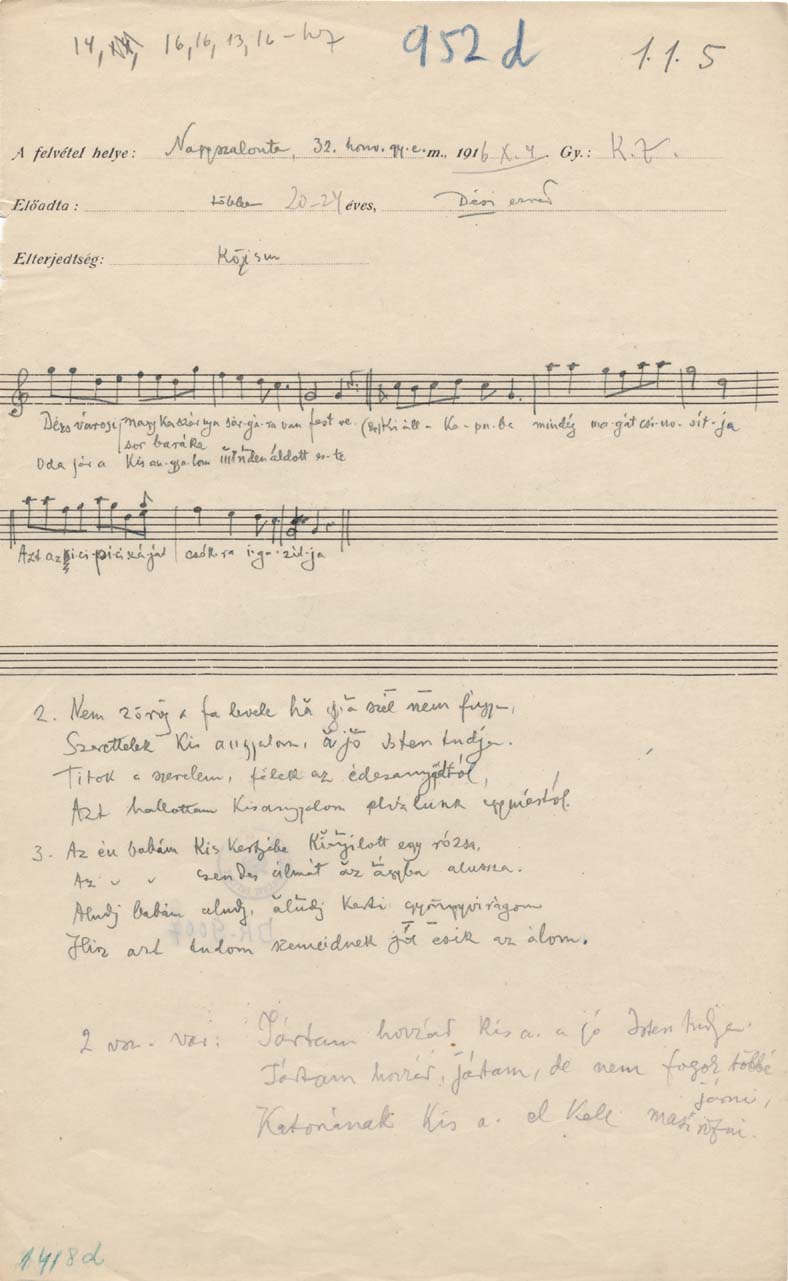 14, 14, 16, 16, 13, 16 –
952 d
1.1.5
A felvétel helye: Nagyszalonta, 32. honv. gy. e. m., 1916 X. 4. Gy.: K. Z.
Előadta: többen 20–24 éves, Dési ezred
Elterjedtség: Közism
Dézs városi nagy kaszárnya sár-gá-ra van fest-ve. Ki áll - Ka-pu-ba mindég ma-gát csi-no-sít-ja
sor baráka
Oda jár a Kis an-gya-lom minden áldott es-te
Azt az pi-ci pi-ci száját csók-ra i-ga-zít-ja
2. Nem zörög a fa levele ha a szél nem fujja,
Szerettelek Kis angyalom, a jó Isten tudja.
Titok a szerelem, félek az édesanyádtól,
Azt hallottam Kisangyalom elválunk egymástól.
3. Az én babám Kis Kertjébe Kinyilott egy rózsa,
Az " " csendes álmát az ágyba alussza.
Aludj babám aludj, aludj Kerti gyöngyvirágom
Hisz azt tudom szemeidnek jól esik az álom.
2 vsz. var: Jártam hozzád Kis a. a jó Isten tudja
Jártam hozzád, jártam, de nem fogok többé
járni,
Katonának Kis a. el Kell masírozni.
1418d